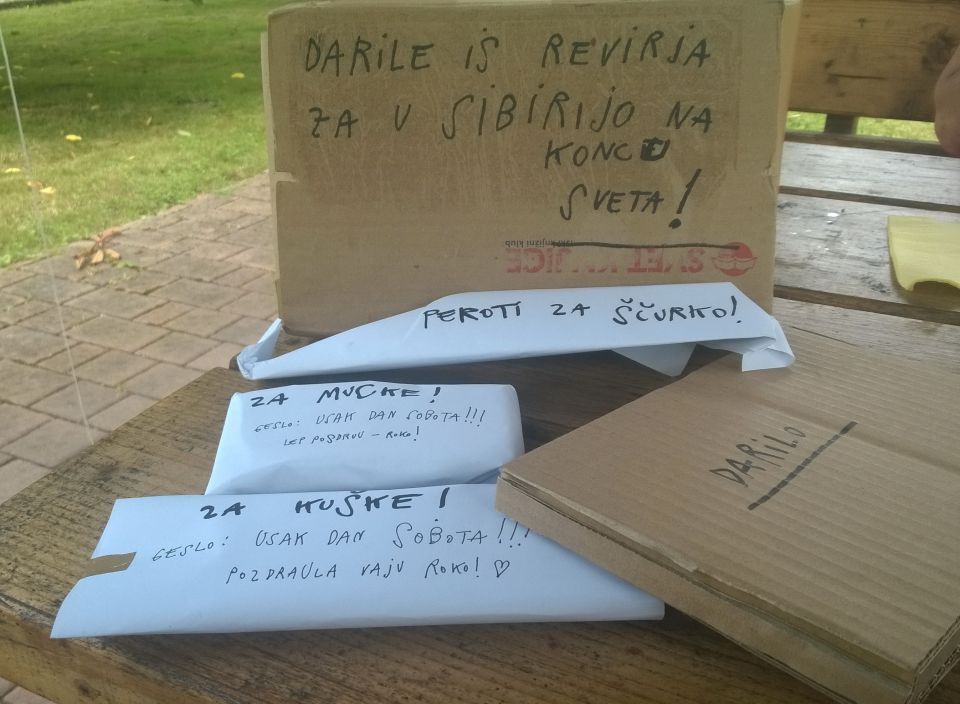 DARILE IŠ REVIRJA
ZA V SIBIRIJO NA
KONCU
SVETA!
SVET KNJIGE
knjižni klub
PEROTI ZA ŠČURKO!
ZA MUCKE!
GESLO: USAK DAN SOBOTA!!!
LEP POZDRUU - ROKO!
DARILO
ZA KUŠKE!
GESLO: USAK DAN SOBOTA!!!
POZDRAULA VAJU ROKO! ♡